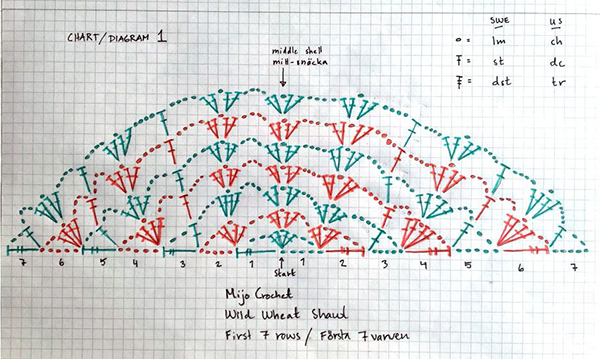 CHART/DIAGRAM 1
middle shell
mitt-snäcka
SWE US
o = lm ch
= st dc
= dst tr
7 6 5 4 3 2 1 1 2 3 4 5 6 7
Start
Mijo Crochet
Wild Wheat Shawl
First 7 rows / Första 7 varven